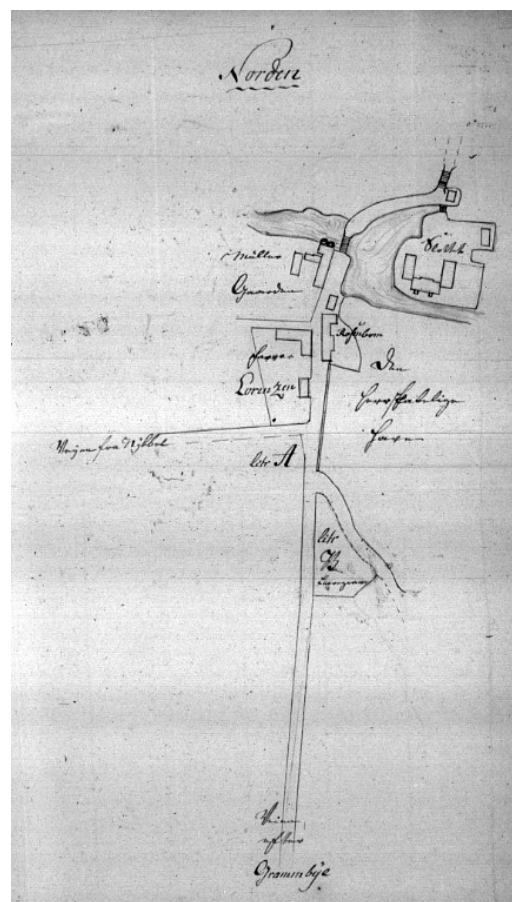 Norden
Slottet
Müller
Gaarden
Farver
Lorenzen
Den
herrskabelige
Have
Veyen fra Nybbel
litr A
litr
B
Veien
efter
Grammbÿe